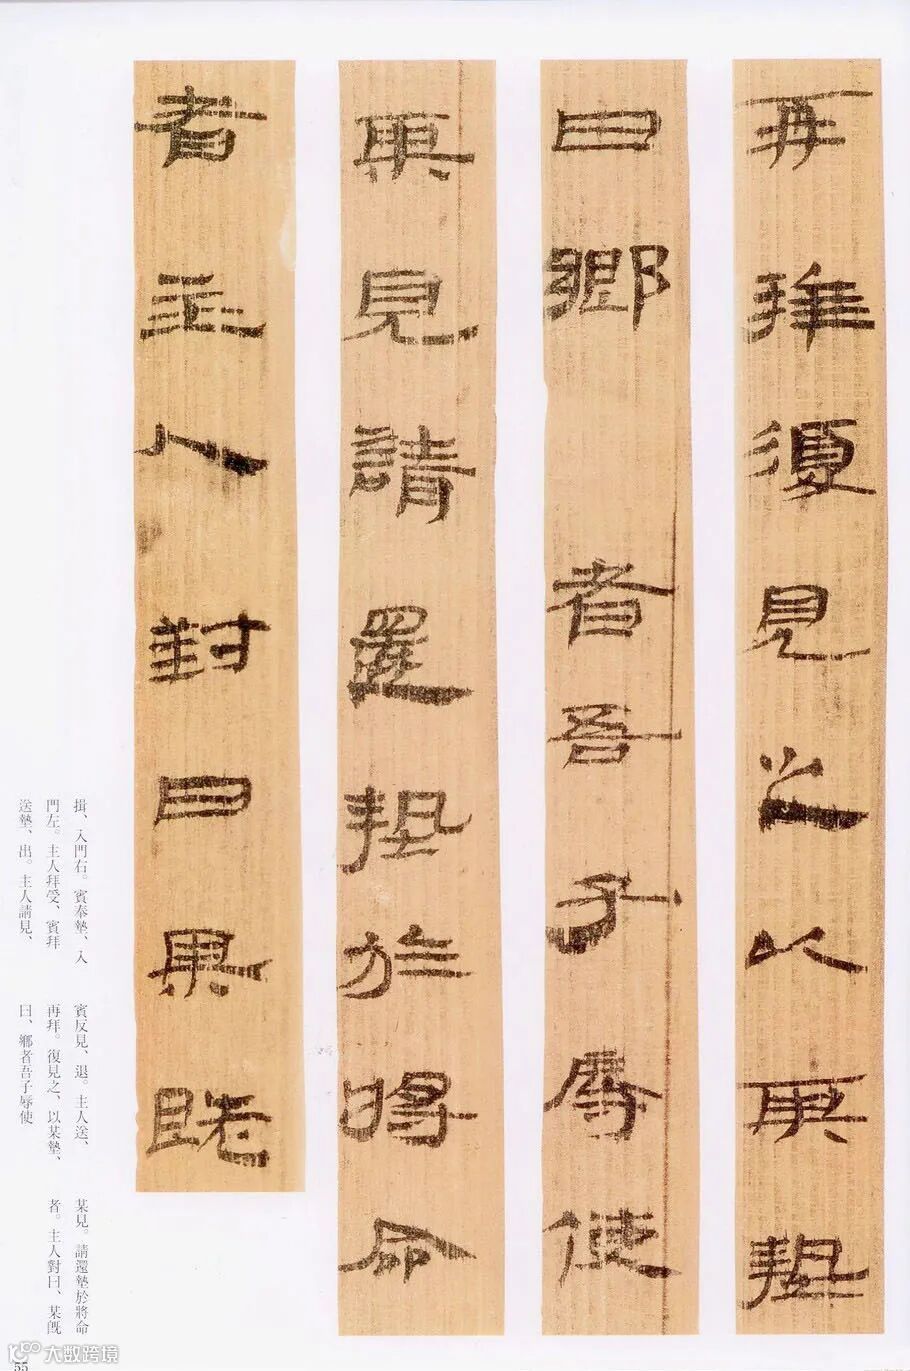 再拜復見之以某摯
曰鄉者吾子辱使
某見請還摯於將命
者主人對曰某既
揖、入門右。賓奉摯、入
門左。主人拜受、賓拜
送摯、出。主人請見、
賓反見、退。主人送、
再拜。復見之、以某摯、
曰、鄉者吾子辱使
某見。請還摯於將命
者。主人對曰、某既
55
大数跨境